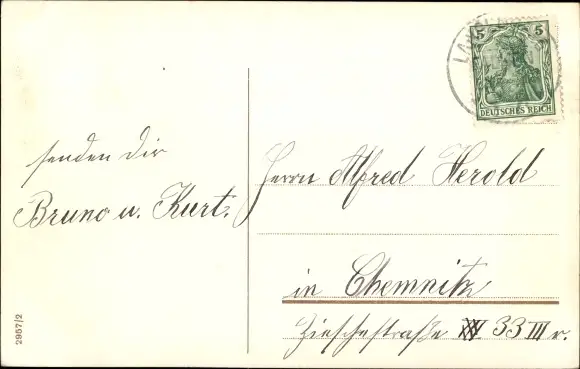 5 5
DEUTSCHES REICH
senden dir
Bruno u. Kurt.
Herrn Alfred Herold
in Chemnitz
Zieschestraße 33 III r.
2957/2